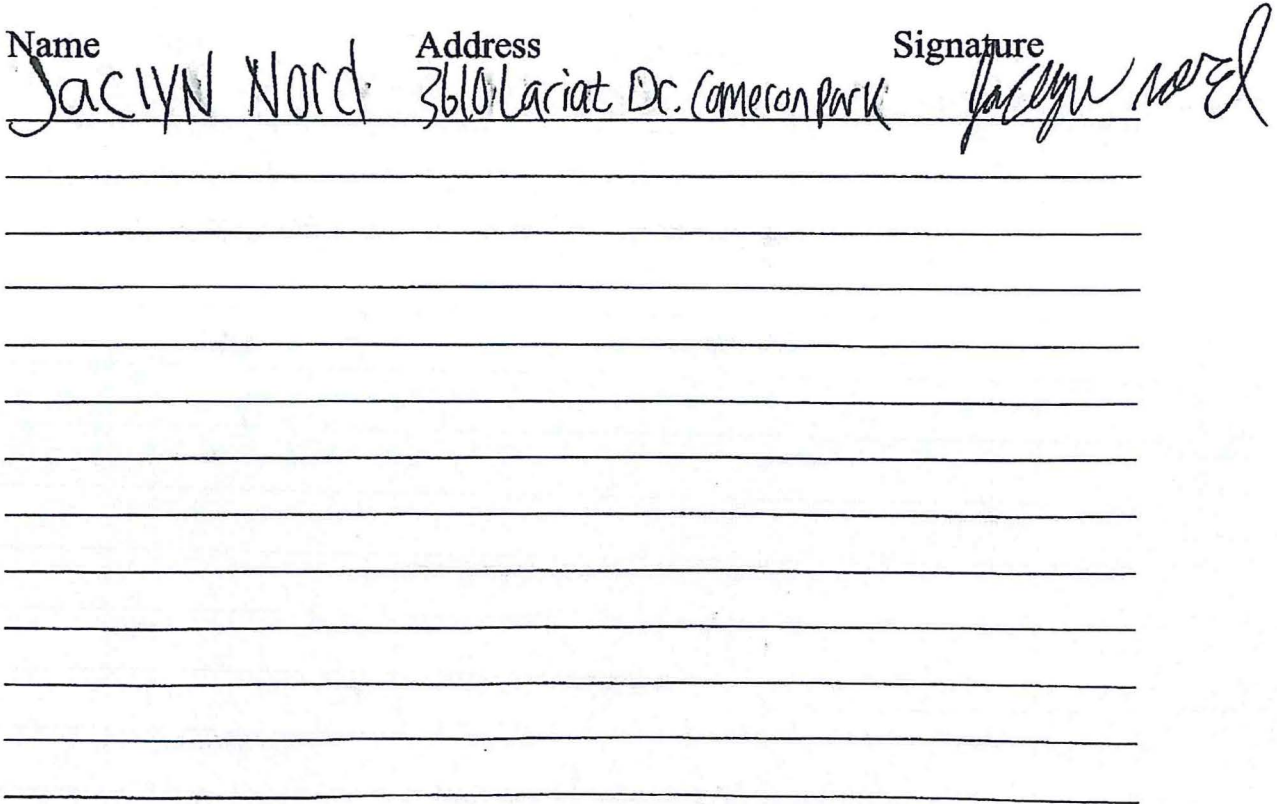 Name Address Signature
Jaclyn Nord 3610 Lariat Dr. Cameron Park Jaclyn Nord